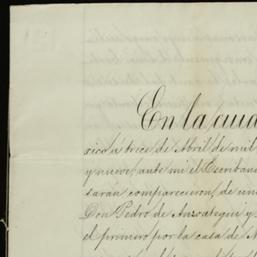 En la ciud
xico á trece de Abril de mil
y nueve, ante mi el Escriban
sarán comparecieron, de un
Don Pedro de Anzoategui y
el primero por la casa de